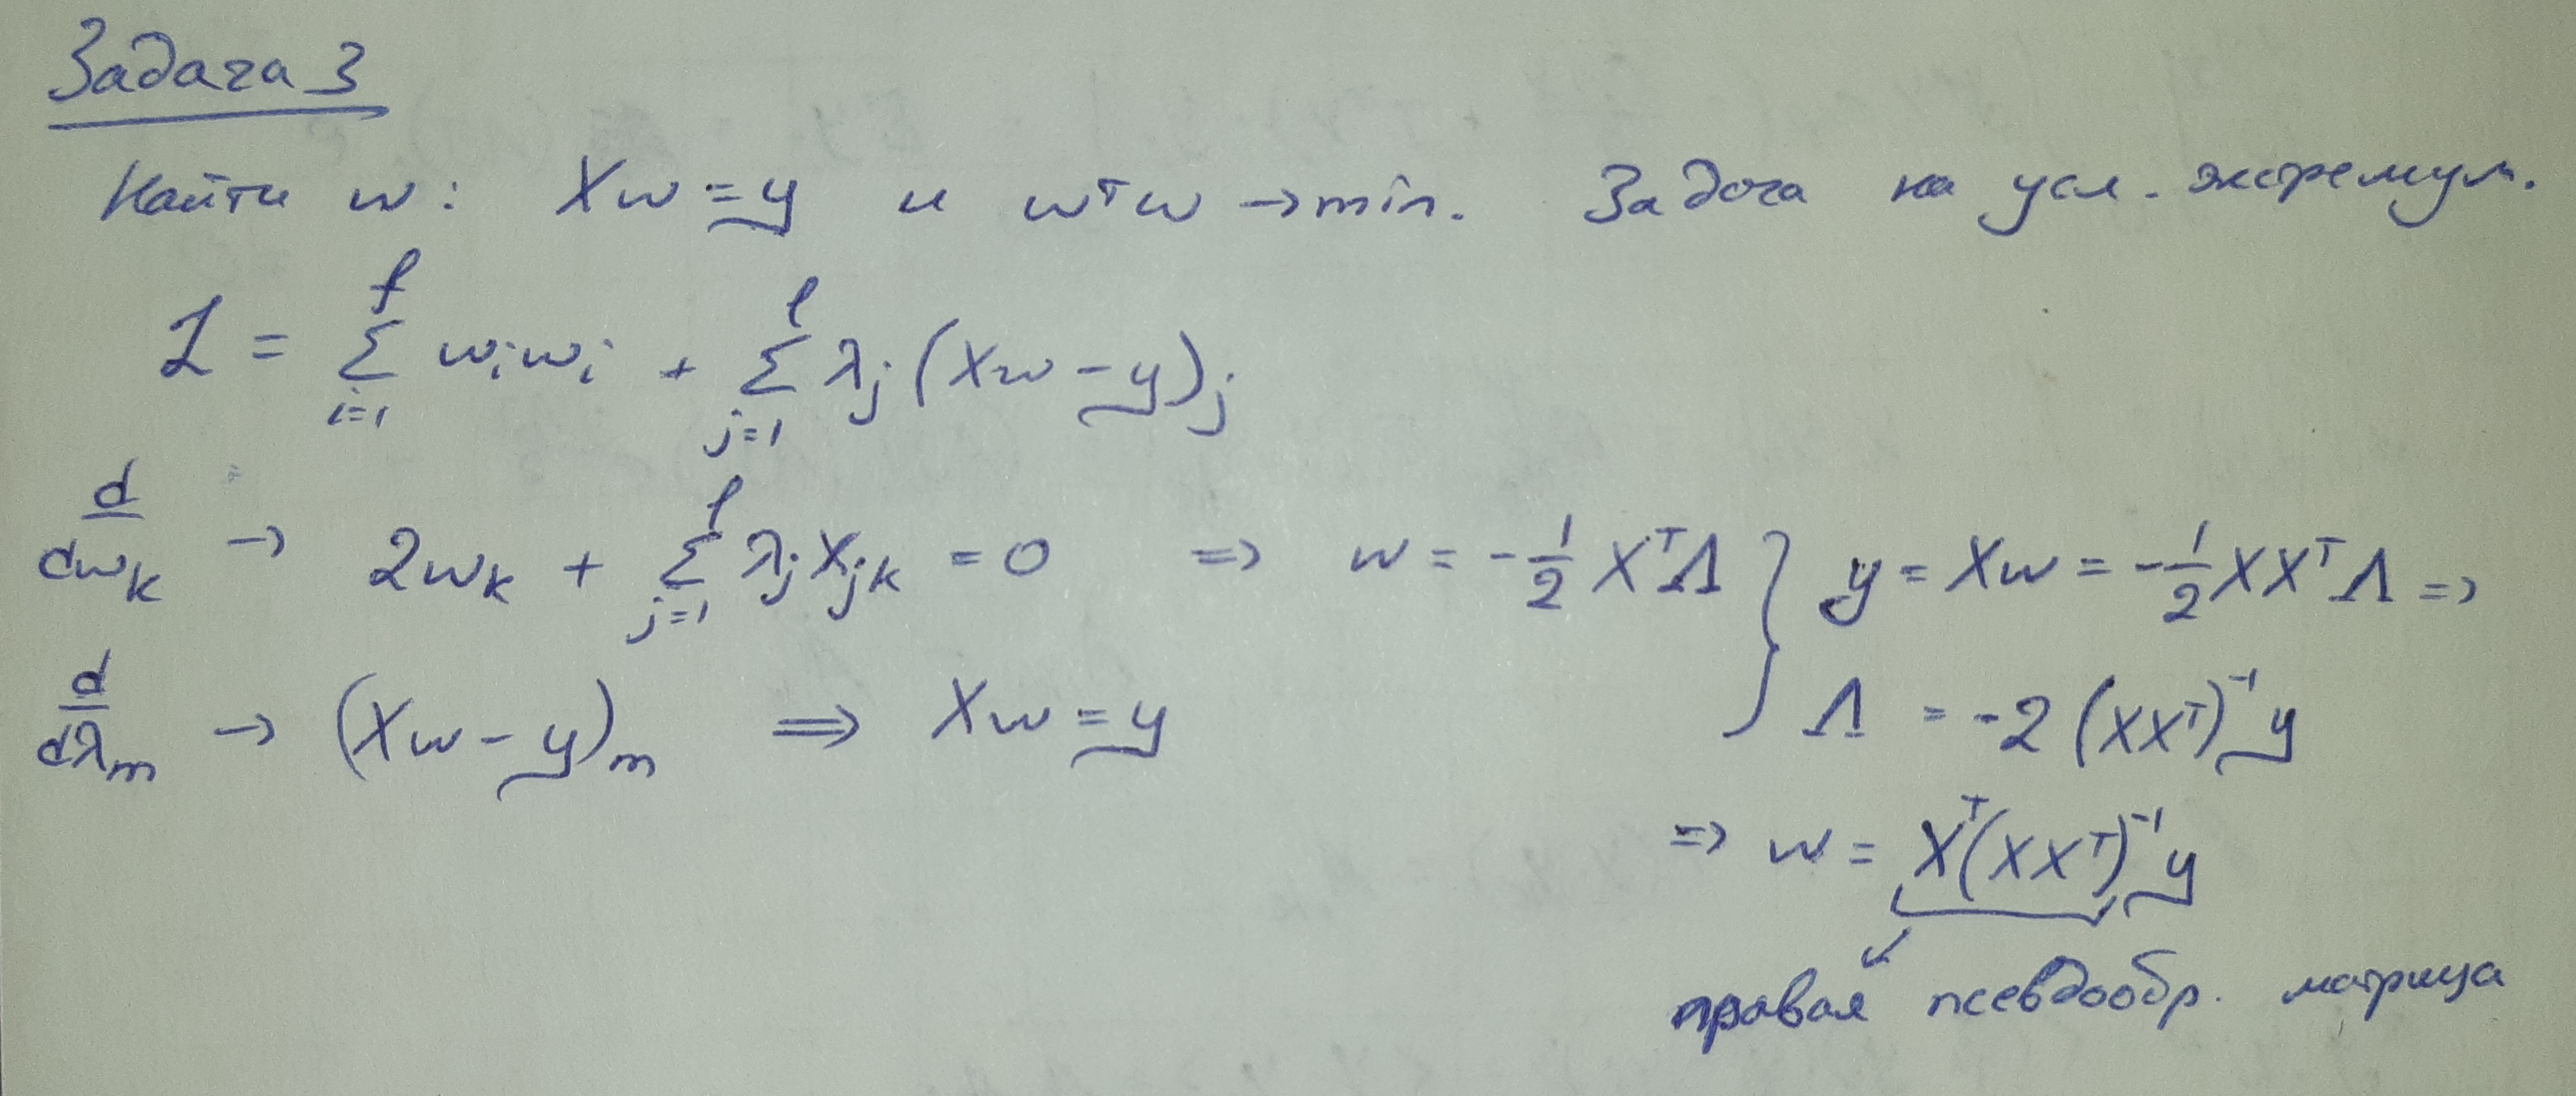 Задача 3
Найти w: Xw = y и wᵀw → min. Задача на усл. экстремум.
L = Σ_{i=1}^{f} w_i w_i + Σ_{j=1}^{l} λ_j (Xw - y)_j
d/dw_k → 2w_k + Σ_{j=1}^{l} λ_j X_{jk} = 0 => w = -1/2 XᵀΛ } y = Xw = -1/2 XXᵀΛ =>
d/dλ_m → (Xw - y)_m => Xw = y } Λ = -2 (XXᵀ)⁻¹ y
=> w = Xᵀ(XXᵀ)⁻¹ y
правая псевдообр. матрица